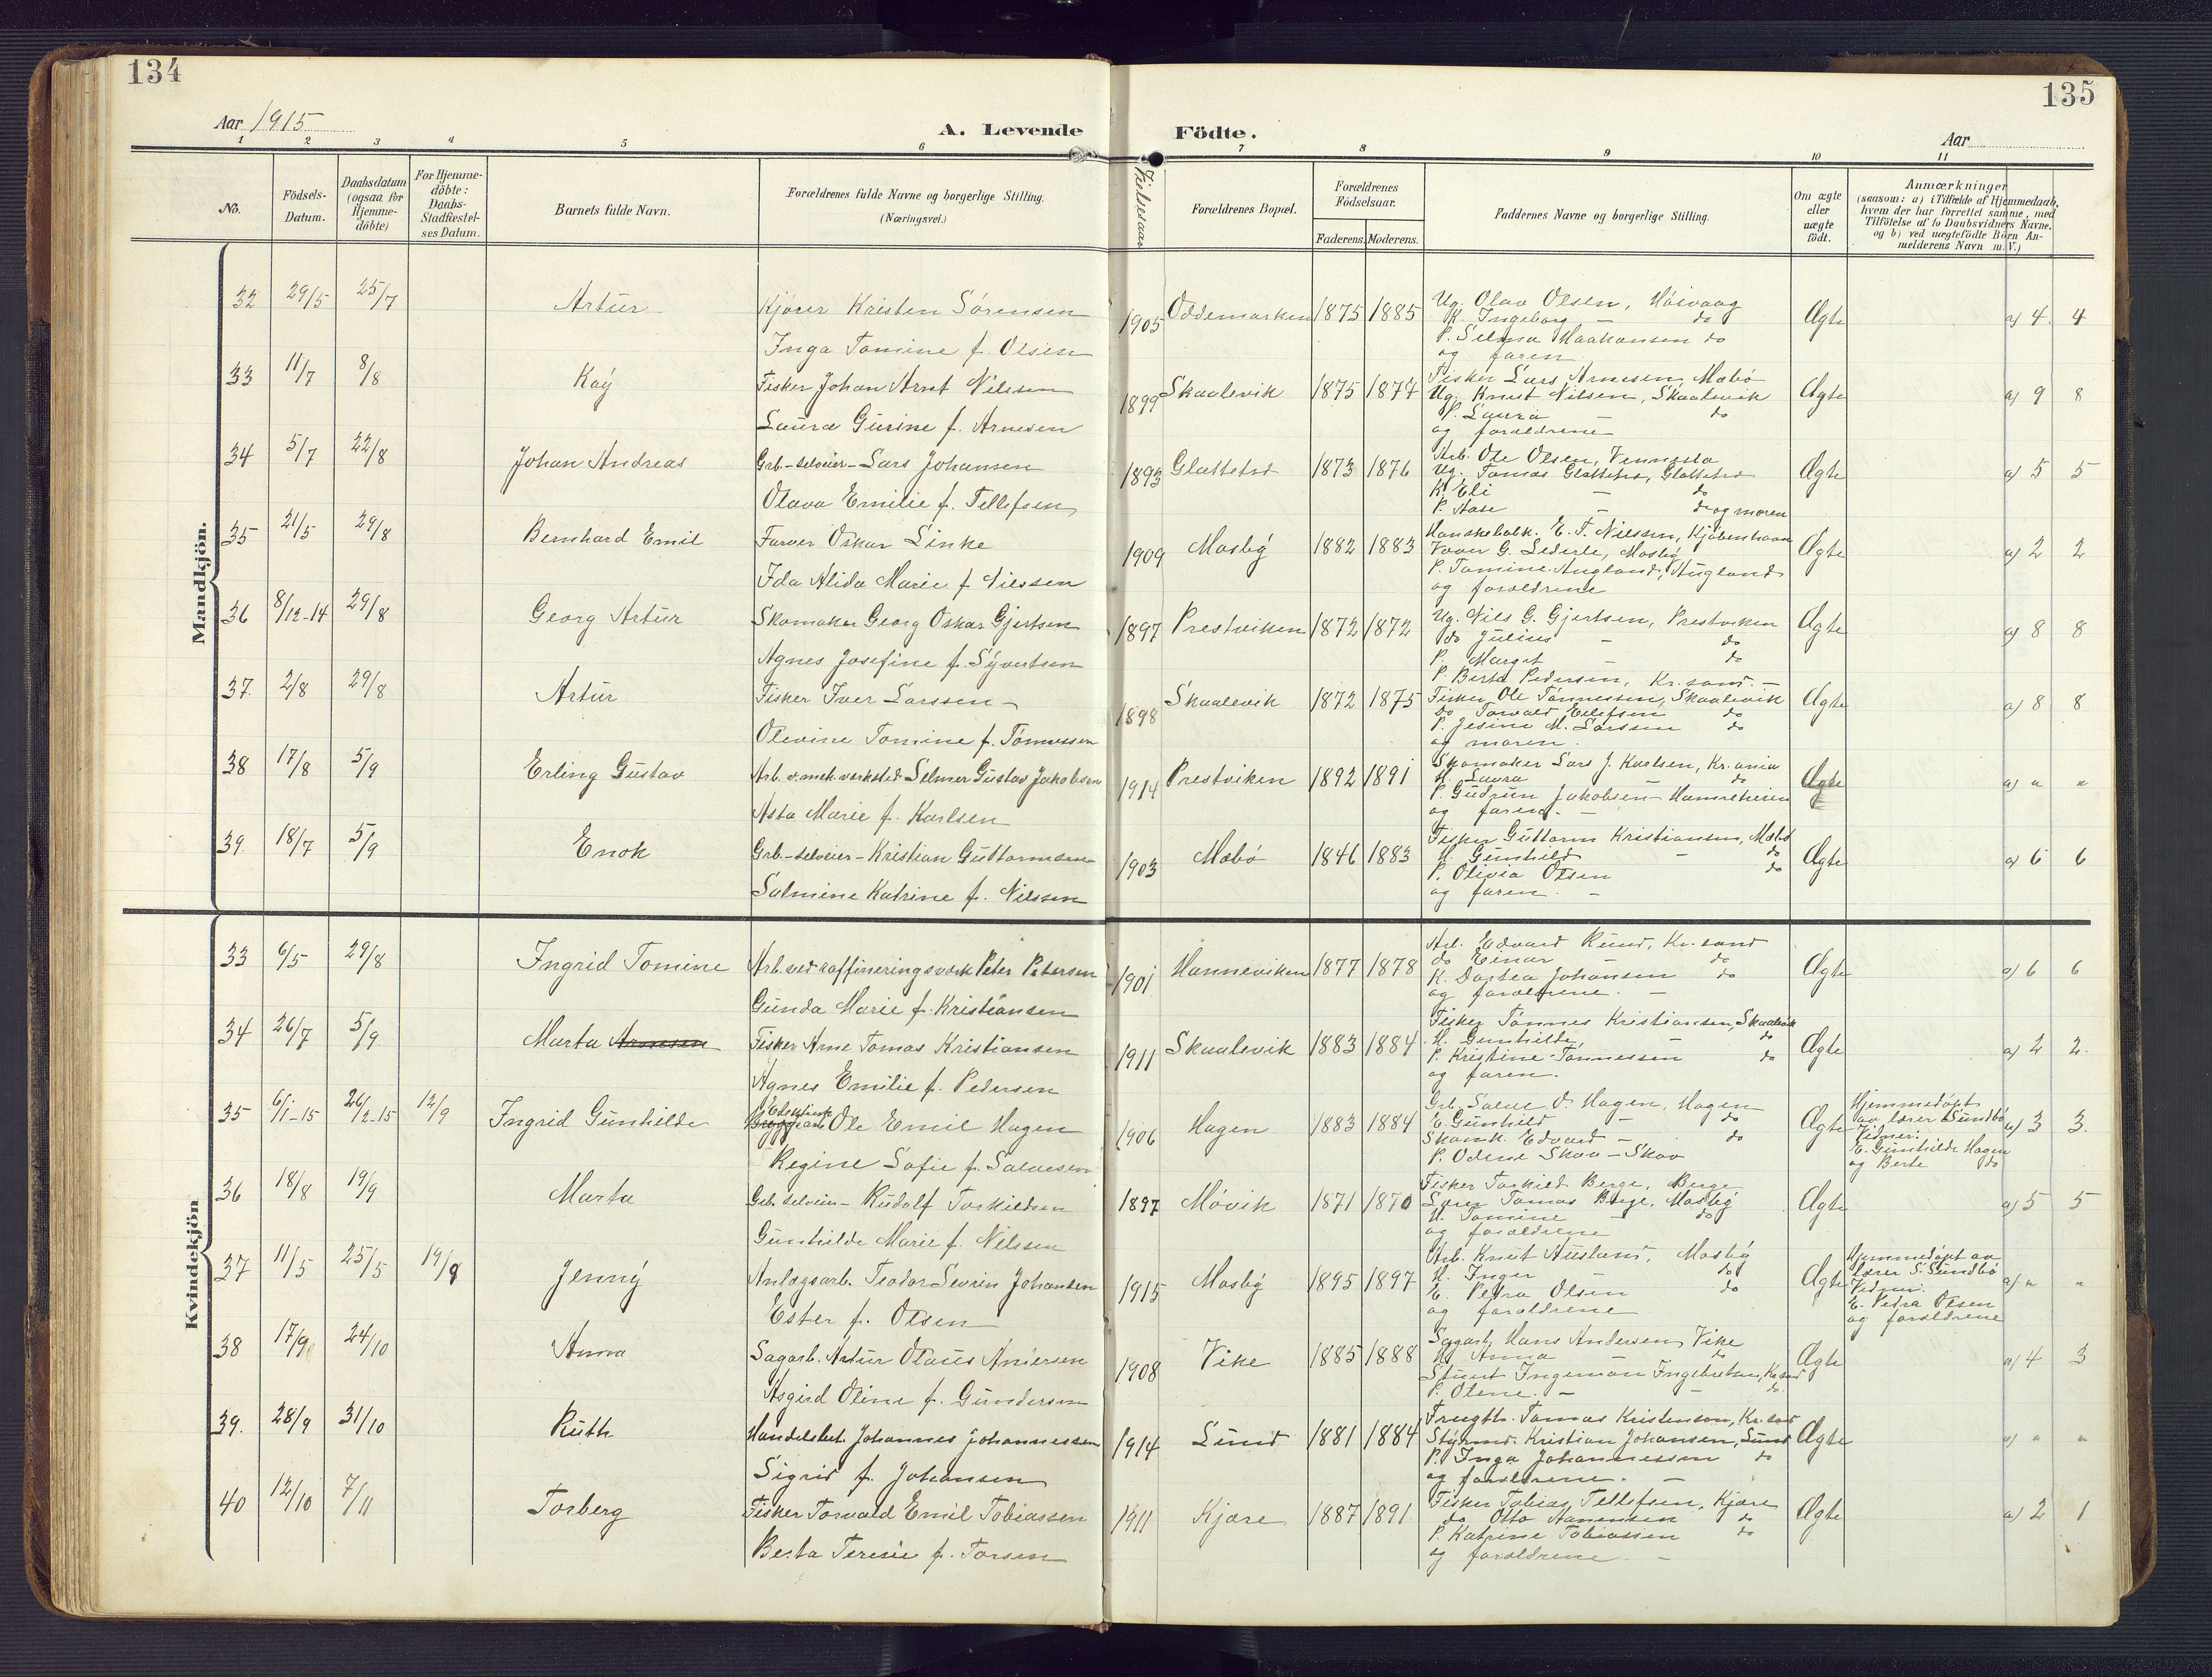 134
135
Aar 1915
A. Levende
Födte.
Aar
1 2 3 4 5 6 7 8 9 10 11
No.
Födsels-
Datum.
Daabsdatum
(ogsaa for
Hjemme-
döbte)
For Hjemme-
döbte:
Daabs-
Stadfæstel-
ses Datum.
Barnets fulde Navn.
Forældrenes fulde Navne og borgerlige Stilling.
(Næringsvei.)
Vielsesaar
Forældrenes Bopæl.
Forældrenes
Födselsaar.
Faderens. Moderens.
Faddernes Navne og borgerlige Stilling.
Om ægte
eller
uægte
födt.
Anmærkninger
(saasom: a) i Tilfælde af Hjemmedaab,
hvem der har forrettet samme, med
Tilföielse af to Daabsvidners Navne,
og b) ved uægtefödte Börn An-
melderens Navn m. V.)
Mandkjön.
32 29/5 25/7 Artur Kjører Kristen Sørensen
Inga Tomine f. Olsen
1905 Oddemarken 1875 1885
Ug. Olav Olsen, Høivaag
K. Ingeborg — do
P. Selma Haakonsen do
og faren
Ægte a) 4. 4
33 11/7 8/8 Kay Fisker Johan Arnt Nilsen
Laura Gurine f. Arnesen
1899 Skaalevik 1875 1874
Fisker Lars Arnesen, Mæbø
Ug. Knut Nilsen, Skaalevik
P. Laura — do
og forældrene
Ægte a) 9 8
34 5/7 22/8 Johan Andreas Grb.-selveier- Lars Johansen
Olava Emilie f. Tellefsen
1893 Glattetre 1873 1876
Arb. Ole Olsen, Vennesla
Ug. Tomas Glattetre, Glattetre
K. Eli — do
P. Aase — do og moren
Ægte a) 5 5
35 21/5 29/8 Bernhard Emil Farver Oskar Linke
Ida Alida Marie f. Nilssen
1909 Mosby 1882 1883
Hanskefabk. E. F. Nilssen, Kjøbenhavn
G. Lederle, Mosby
P. Tomine Augland, Augland
og forældrene
Ægte a) 2 2
36 8/12-14 29/8 Georg Artur Skomaker Georg Oskar Gjertsen
Agnes Josefine f. Syvertsen
1897 Prestviken 1872 1872
Ug. Nils G. Gjertsen, Prestviken
do Julius — do
P. Margit — do
P. Berta Pedersen, Kr.sand. —
Ægte a) 8 8
37. 2/8 29/8 Artur Fisker Iver Larssen —
Olevine Tomine f. Tønnessen
1898 Skaalevik 1872 1875
Fisker Ole Tønnessen, Skaalevik
do Torvald Eilefsen do
P. Jesine M. Larssen do
og moren.
Ægte a) 8 8
38 17/8 5/9 Erling Gustav Arb. v. mek. verksted Selmer Gustav Jakobsen
Asta Marie f. Karlsen
1914 Prestviken 1892 1891
Skomaker Lars J. Karlsen, Kr.ania
H. Laura — do
P. Gudrun Jakobsen — Hamreheien
og faren. —
Ægte a) " "
39. 18/7 5/9 Enok Grb.-selveier- Kristian Guttormsen
Salmine Katrine f. Nilssen
1903 Mæbø 1846 1883
Fisker Guttorm Kristiansen, Mæbø
H. Gunhild — do
P. Olivia Olsen do
og faren. —
Ægte a) 6 6
Kvindekjön
33 6/5 29/8 Ingrid Tomine Arb. ved raffineringsverk Peter Petersen
Gunda Marie f. Kristiansen
1901 Hanneviken 1877 1878
Arb. Edvard Rund, Kr.sand
do Einar — do
K. Dortea Johansen do
og forældrene. —
Ægte a) 6 6
34 26/7 5/9 Marta Arnesen Fisker Arne Tomas Kristiansen
Agnes Emilie f. Pedersen
1911 Skaalevik 1883 1884
Fisker Tønnes Kristiansen, Skaalevik
H. Gunhilde — do
P. Kristine Tønnessen do
og faren.
Ægte a) 2 2.
35 6/1-15 26/2-15 12/9 Ingrid Gunhilde Ole Emil Hagen
Regine Sofie f. Salvesen
1906 Hagen 1883 1884
Grb. Salve O. Hagen, Hagen
E. Gunhild — do
Skomk. Edvard — do
P. Odene Skaa — Skov
Ægte
Hjemmedøpt
av lærer Sundbø
Vidner:
E. Gunhilde Hagen
og Berte do
a) 3 3.
36 18/8 19/9 Marta Grb. selveier — Rudolf Torkildsen
Gunhilde Marie f. Nilssen
1897 Møvik 1871 1870
Fisker Torkild Berge, Berge
Lærer Tomas Berge, Mosby
H. Tomine — do
og forældrene
Ægte a) 5 5
37 11/5 25/5 19/9 Jenny Anlægsarb. Teodor Severin Johansen
Ester f. Olsen
1915 Mosby 1895 1897
Arb. Knut Ausland, Mosby
H. Inger do
E. Petra Olsen do
og forældrene
Ægte
Hjemmedøpt av
lærer S. Sundbø
Vidner:
E. Petra Olsen
og forældrene
a) " "
38 17/9 24/10 Anna Sagarb. Artur Olaus Andersen
Asgerd Oline f. Gundersen
1908 Vike 1885 1888
Sagarb. Hans Andersen Vike
H. Anna do
Ingeman Ingebretsen, Kr.sand
P. Olene. — — do.
Ægte a) 4 3
39. 28/9 31/10 Ruth Handelsbet. Johannes Johannessen
Sigrid f. Johansen
1914 Lund 1881 1884
Frugth. Tomas Kristensen, Kr.sand
Styrmd. Kristian Johansen, Lund
P. Inga Johannessen do
og forældrene. —
Ægte a) " "
40 12/10 7/11 Torberg Fisker Torvald Emil Tobiassen
Berta Teresie f. Torsen
1911 Kjære 1887 1891
Fisker Tobias Tellefsen, Kjære
do Otto Hanensen do
P. Katrine Tobiassen do
og forældrene. —
Ægte a) 2 1